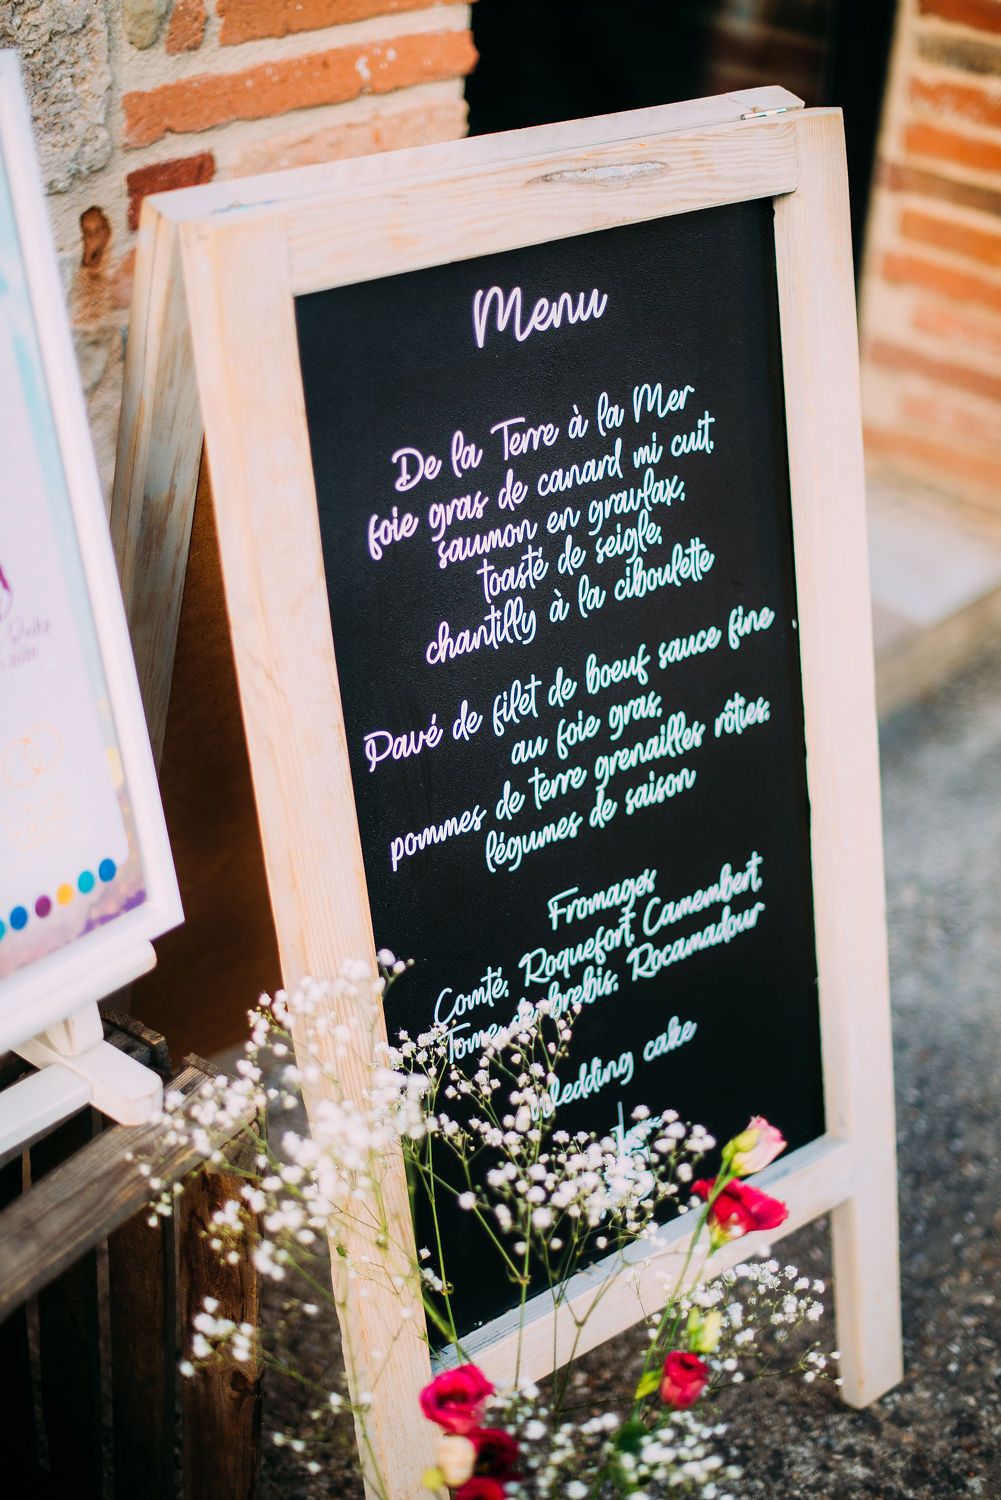 Menu
De la Terre à la Mer
foie gras de canard mi cuit,
saumon en gravlax,
toasté de seigle,
chantilly à la ciboulette
Pavé de filet de boeuf sauce fine
au foie gras,
pommes de terre grenailles rôties,
légumes de saison
Fromages
Comté, Roquefort, Camembert,
Tome de brebis, Rocamadour
Wedding cake